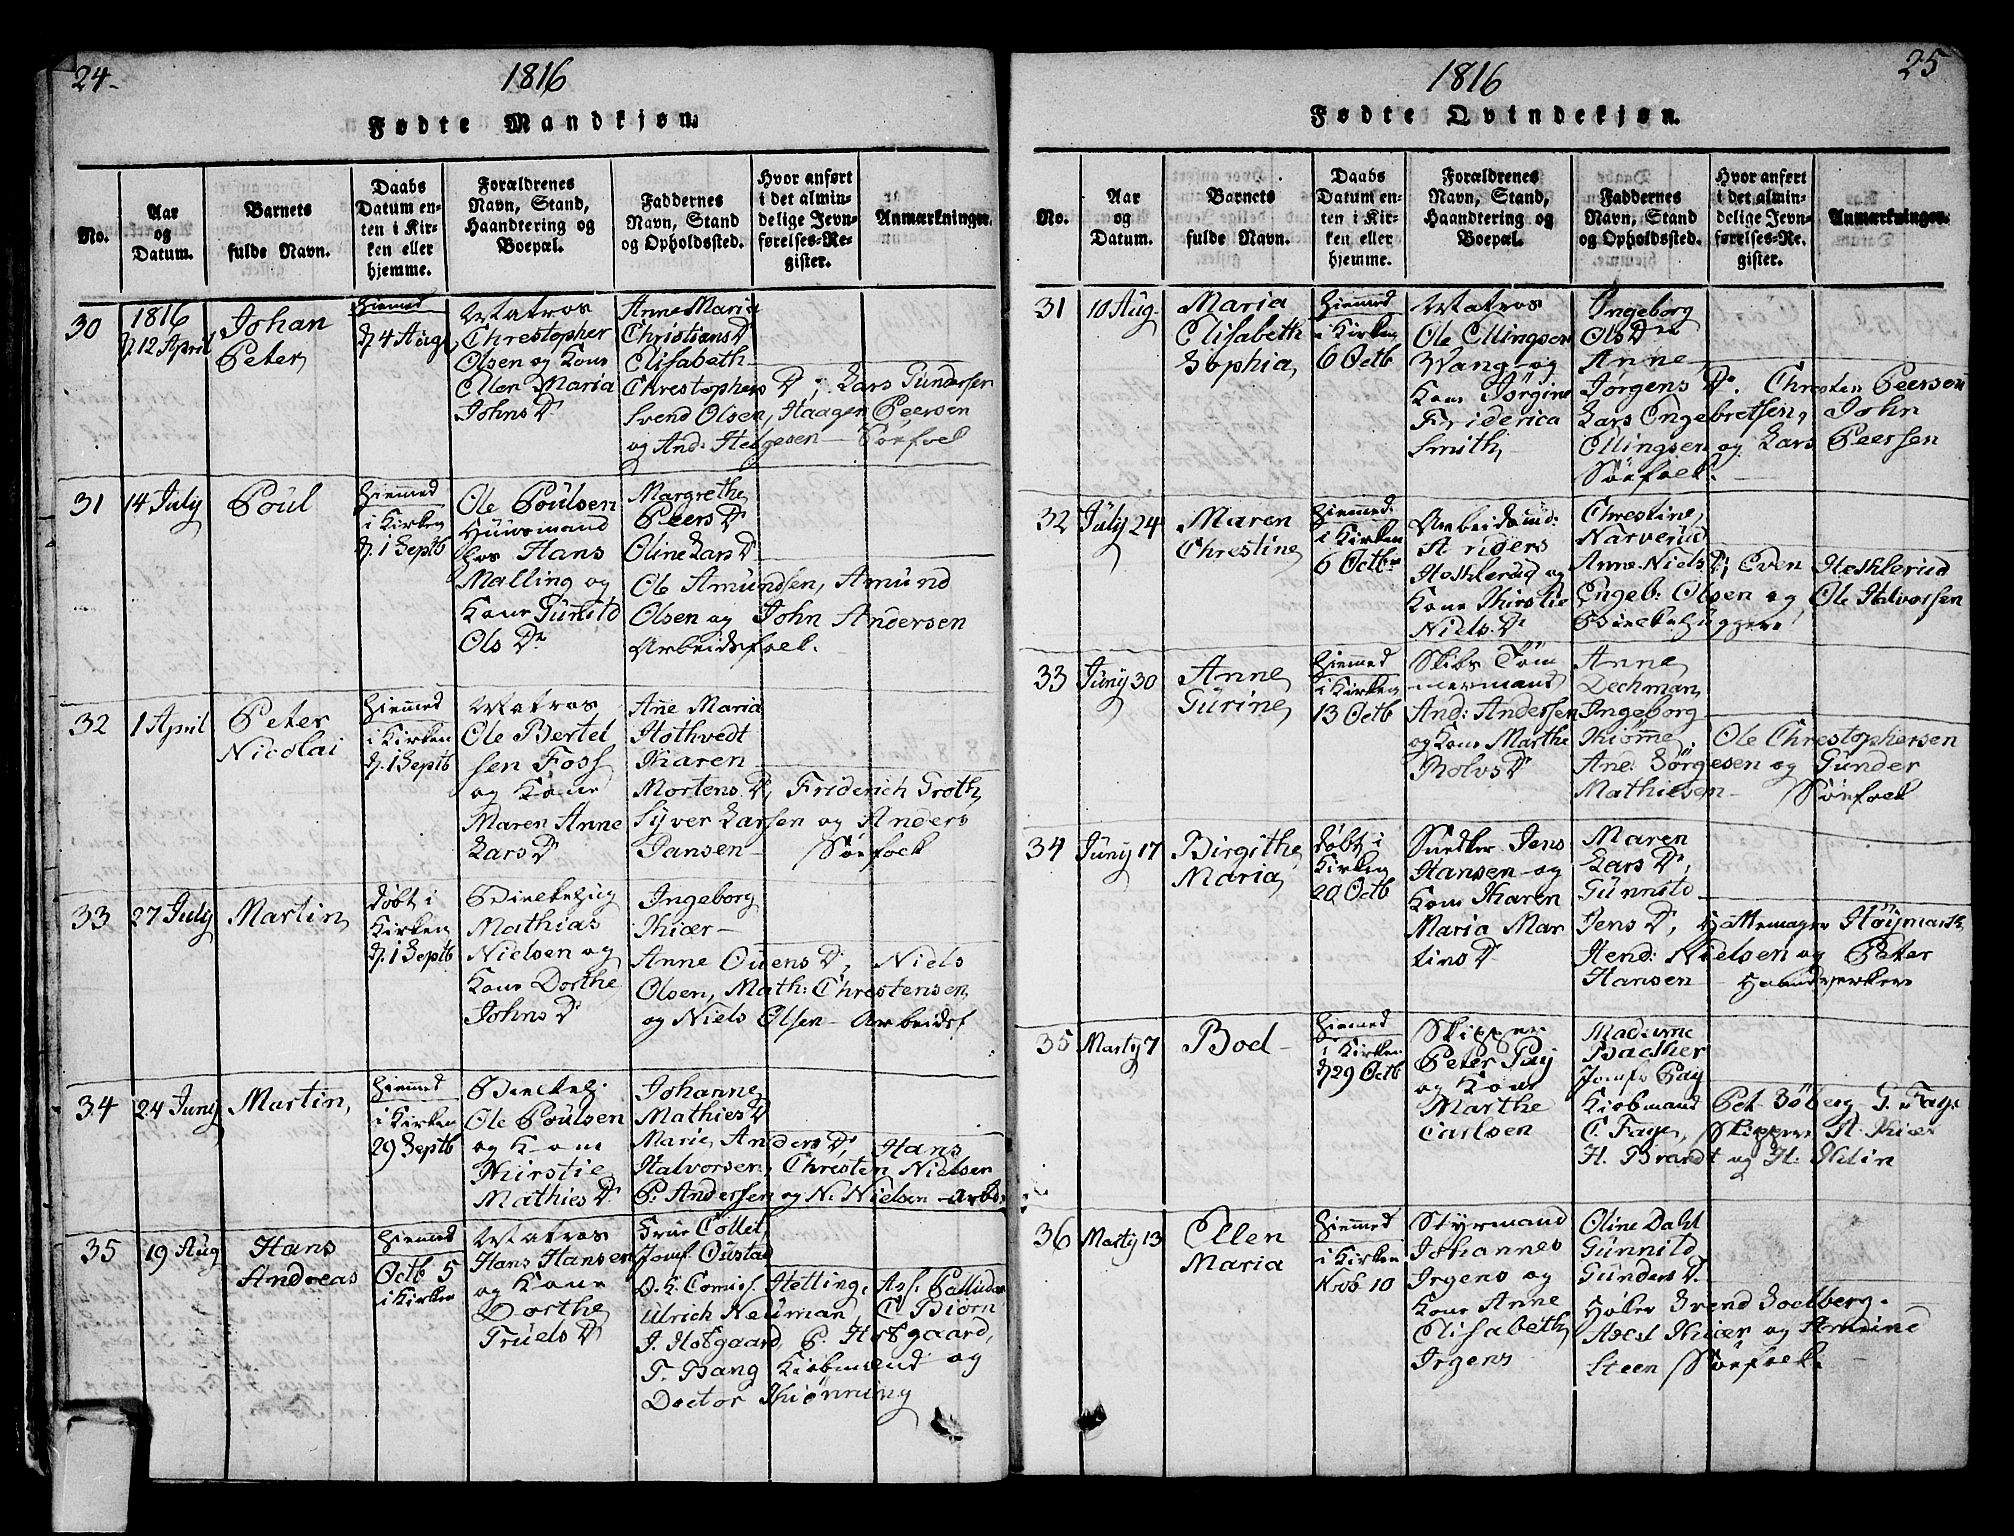 24.
1816
Fødte Mandkjøn.
No.
Aar
og
Datum.
Barnets
fulde Navn.
Daabs
Datum en-
ten i Kir-
ken eller
hjemme.
Forældrenes
Navn, Stand,
Haandtering og
Boepæl.
Faddernes
Navn, Stand
og Opholdssted.
Hvor anført
i det almin-
delige Jevn-
førelses-Re-
gister.
Anmærkninger.
30
1816
12 April
Johan
Peter
Hiemmed
4 Aug
Matros
Christopher
Olsen og Kone
Ellen Maria
Johns D
Anne Maria
Christians D
Elisabeth
Chrestophers D; Lars Gundersen
Svend Olsen, Haagen Peersen
og And: Helgesen — Søefolk
31
14 July
Poul
Hiemmed
i Kirken
d. 1 Septb
Ole Poulsen
Huusmand
hos Hans
Malling og
Kone Gunild
Ols Dr
Margrethe
Peers D
Oline Lars D
Ole Amundsen, Amund
Olsen og John Andersen
Arbeidsfolk.
32
1 April
Peter
Nicolai
Hiemmed
i Kirken
d. 1 Septb
Matros
Ole Bertel
sen Foss
og Kone
Maren Anne
Lars D
Ane Maria
Hothvedt
Karen
Mortens D, Friderich Groth,
Syver Larsen og Anders
Jansen — Søefolk
33
27 July
Martin
Døbt i
Kirken
d. 1 Septb
Mathias
Nielsen og
Kone Dorthe
Johns D
Ingeborg
Kiær —
Anne Ouens D, Niels
Olsen, Math: Christensen
og Niels Olsen — Arbeidsf
34
24 Juny
Martin,
Hiemmed
i Kirken
29 Septb
Ole Poulsen
og Kone
Kirstie
Mathies D
Johanne
Mathies D
Marie Anders D, Hans
Halvorsen, Christen Nielsen
P. Andersen og N. Nielsen — Arbs.
35
19 Aug
Hans
Andreas
Hiemmed
Octb 5
i Kirken
Matros
Hans Hansen
og Kone
Dorthe
Truels D
Frue Collet,
Jomf. Oustad
O. K. Comis. Hetting,
Ulrich Neuman, C. Biørn
J. Hofgaard, P. Hofgaard,
T. Bang Kiøbmænd og
Doctor Kiønning
25
1816
Fødte Qvindekjøn.
No.
Aar
og
Datum.
Barnets
fulde Navn.
Daabs
Datum en-
ten i Kir-
ken eller
hjemme.
Forældrenes
Navn, Stand,
Haandtering og
Boepæl.
Faddernes
Navn, Stand
og Opholdssted.
Hvor anført
i det almin-
delige Jevn-
førelses-Re-
gister.
Anmærkninger.
31
10 Aug.
Maria
Elisabeth
Sophia,
Hiemmed
i Kirken
6 Octb
Matros
Ole Ellingsen
Wang og
Kone Jørgine
Friderica
Smith,
Ingeborg
Ols Dr
Anne
Jørgens D. Christen Peersen
Lars Engebretsen, John
Ellingsen og Lars Peersen
Søefolk.
32
July 24
Maren
Chrestine
Hiemmed
i Kirken
6 Octbr
Arbeidsmd:
Hesklerud og
Kone Kirstie
Niels D
Chrestine,
Narverud
Anne Niels D; Even Hesklerud
Engeb: Olsen og Ole Halvorsen
33
Juny 30
Anne
Gurine
Hiemmed
i Kirken
13 Octb
Skibs Tøm
mermand
And: Andersen
og Kone Marthe
Rolvs D
Anne
Dechman
Ingeborg
Kiømme, Ole Chrestophersen
Ane: Sørgesen og Gunder
Mathiesen — Søefolk
34
Juny 17
Birgithe
Maria
Døbt i
Kirken
20 Octb
Snedker Jens
Hansen og
Kone Karen
Maria Mar
tins D
Maren
Lars D,
Gunnild
Jens D, Hattemager Høymarth
Hend: Nielsen og Peter
Hansen — Haandverkere
35
Marty 7
Boel
Hiemmed
i Kirken
29 Octb
Skipper
Peter Paÿ
og Kone
Marthe
Carlsen
Madame
Backher
Jomfr Pay
Kiøbmand Pet. Søberg, G. Faye
C. Faye, Skippere A. Kiær
H. Brandt og H. Klein
36
Marty 13
Ellen
Maria
Hiemmed
i Kirken
Nvb 10
Styrmand
Johannes
Irgens og
Kone Anne
Elisabeth
Irgens
Oline Dahl
Gunnild
Gunders D.
Høker Svend Soelberg.
Axel Kiær og Amdine
Steen Søefolk.